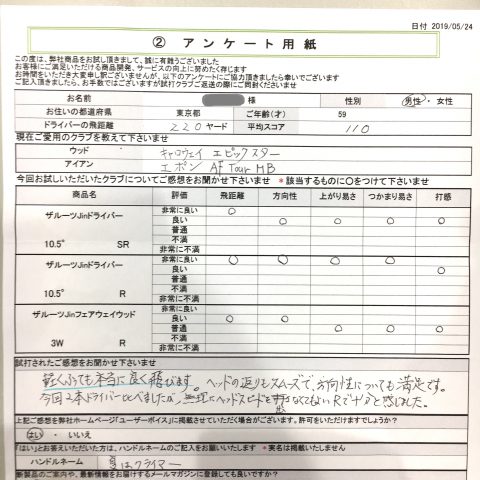 日付 2019/05/24
② アンケート用紙
この度は、弊社商品をお試し頂きまして、誠に有難うございました
お客様にご満足いただける商品開発、サービスの向上に努めたく存じます
お時間をいただき大変申し訳ございませんが、以下のアンケートにご協力頂きましたら幸いでございます
ご記入頂きましたら、お手数ではございますが試打クラブご返送の際にご同封くださいませ
お名前 様 性別 男性・女性
お住いの都道府県 東京都 ご年齢(才) 59
ドライバーの飛距離 220 ヤード 平均スコア 110
現在ご愛用のクラブを教えて下さいませ
ウッド キャロウェイ エピックスター
アイアン エポン AF Tour MB
今回お試しいただいたクラブについてご感想をお聞かせ下さいませ *該当するものに○をつけて下さいませ
商品名 評価 飛距離 方向性 上がり易さ つかまり易さ 打感
ザルーツJinドライバー 非常に良い ○
良い ○ ○ ○ ○
普通
10.5° SR 不満
非常に不満
ザルーツJinドライバー 非常に良い ○ ○ ○ ○
良い ○
普通
10.5° R 不満
非常に不満
ザルーツJinフェアウェイウッド 非常に良い
良い ○ ○
普通 ○ ○ ○
3W R 不満
非常に不満
試打されたご感想をお聞かせ下さいませ
軽くふっても本当に良く飛びます。ヘッドの返りもスムーズで、方向性についても満足です。
今回2本ドライバー比べましたが、無理にヘッドスピードを出さなくてもいいRで十分と感じました。
上記ご感想を弊社ホームページ「ユーザーボイス」に掲載させていただく場合がございます。許可をいただけますでしょうか?
はい ・ いいえ
「はい」とお答えいただいた方は、ハンドルネームのご記入をお願いいたします *実名は掲載いたしません
ハンドルネーム はクライマー
新製品のご案内や、最新情報をお届けするメールマガジンに登録しても良いですか?